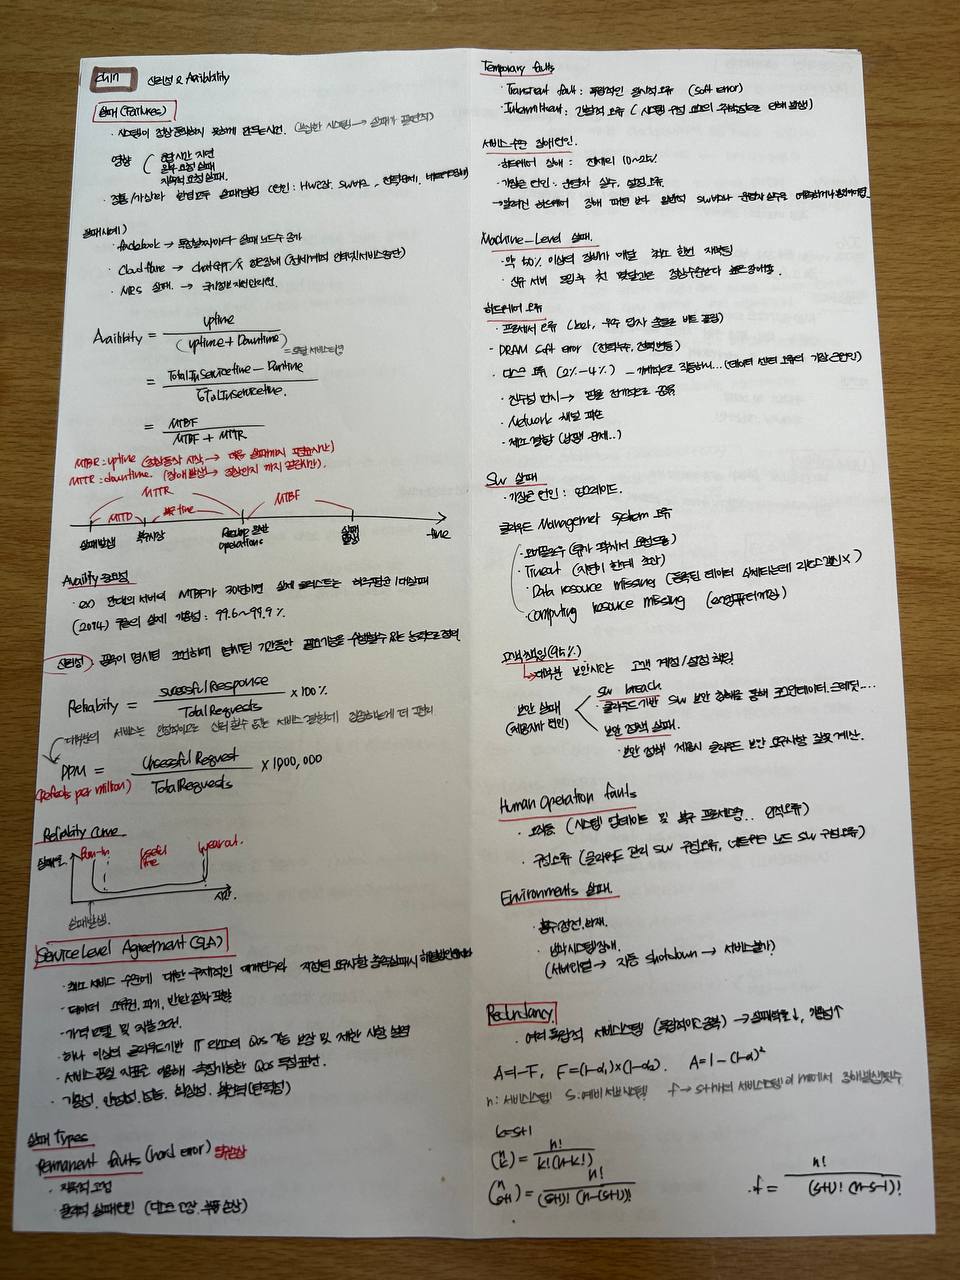 Ch11 신뢰성 & Avaliability
실패 (Failures)
· 시스템이 정상 동작하지 못하게 만드는 사건. (복잡한 시스템 → 실패가 필연적)
영향
응답시간 지연
일부 요청 실패
지속적 요청 실패.
· 정통/가상화 환경 모두 실패 발생 (원인: HW고장, SW버그, 전력문제, 네트워크 장애
실패사례)
· facebook → 특정 날짜마다 실패 노드수 증가
· Cloud flare → chatGPT/X 접속장애 (전세계적 인터넷 서비스 중단)
· NIRS 실패. → 국가정보자원관리원.
Availibity = uptime / (uptime + Downtime)
= 토탈 서비스타임
= Total In Service time - Downtime / Total Inservicetime.
= MTBF / MTBF + MTTR
MTBF: uptime (정상동작 시작 → 다음 실패까지 평균시간)
MTTR: downtime. (장애 발생 → 정상인지 까지 평균시간).
MTTR MTBF
MTTD 복구 time
실패발생 복구시작 Resume 정상 operations 실패 발생 time
Availity 중요성
· ex) 만대의 서버의 MTBF가 30년이면 실제 클러스트는 하루평균 1대 실패
(2014) 구글의 실제 가용성: 99.6~99.9%.
신뢰성: 품목이 명시된 조건하에 명시된 기간동안 필요기능을 수행할 수 있는 능력으로 정의
Reliabity = sucessful Response / Total Requests × 100%
대부분의 서비스는 안정적이므로 신뢰할수 없는 서비스 결함에 집중하는게 더 편리
DPM = Unsessful Request / Total Requests × 1,000,000
(Defects per million)
Reliablity Curve
실패율 Burn-in Useful life Wearout.
시간.
실패발생.
Service Level Agreement (SLA)
· 최소 서비스 수준에 대한 구체적인 매개변수와 지정된 요구사항 충족실패시
· 데이터 소유권, 파기, 반환 절차 포함
· 가격 모델 및 지불 조건.
· 하나 이상의 클라우드기반 IT 리소스의 QoS 기능 보장 및 제한 사항 설명
· 서비스품질 지표를 이용해 측정가능한 QoS 특성 표현.
· 가용성, 안정성, 성능, 확장성, 복원력(탄력성)
실패 Types
Permanent faults (hard error) 영구손상
· 지속적 고정
· 물리적 실패원인 (디스크 고장, 부품 손상)
Temporary faults
· Transient fault: 독립적인 일시적 오류 (soft error)
· Intermittent: 간헐적 오류 (시스템 구성 요소의 주변환경으로 인해 발생)
서비스수준 장애원인.
· 하드웨어 장애: 전체의 10~25%
· 가장큰 원인: 운영자 실수, 설정 오류.
→ 알려진 하드웨어 장애 패턴 보다 일반적 SW버그와 운영자 실수를
Machine-Level 실패.
· 약 50% 이상의 장비가 매달 최소 한번 재부팅
· 신규 서버 도입후 첫 몇달간은 정상수준보다 높은장애율.
하드웨어 오류
· 프로세서 오류 (노화, 우주 입자 충돌로 비트 플립)
· DRAM Soft error (전력누수, 전력변동)
· 디스크 오류 (2%~4%) — 기계적으로 작동하니... (데이터 센터 오류의 가장큰원인)
· 전원성 먼지 → 팬을 정기적으로 교체
· Network 채널 파손
· 제조 결함 (납땜 문제..)
SW 실패
· 가장큰 원인: 업그레이드.
클라우드 Managemet system 오류
· 오버플로우 (큐가 꽉차서 요청드롭)
· Timeout (시간이 한계 초과)
· Data resouce missing (등록된 데이터 삭제되는데 리스트갱신 X)
· computing resouce missing (ex컴퓨터꺼짐)
고객책임 (95%)
→ 대부분 보안사고는 고객 계정/설정 책임
보안 실패 (제공자가 원인)
SW breach
· 클라우드기반 SW 보안 침해를 통해 고객데이터, 크레딧....
보안 정책 실패.
· 보안 정책 제공시 클라우드 보안 요구사항 잘못 계산.
Human Operation faults
· 오작동 (시스템 업데이트 및 복구 프로세스중.. 인적오류)
· 구성오류 (클라우드 관리 SW 구성오류, 네트워크 노드 SW 구성오류)
Environments 실패.
· 홍수, 정전, 화재.
· 냉각시스템장애.
(서버과열 → 자동 Shotdown → 서비스불가)
Redundancy.
· 여러 독립적 서비스시스템 (독립적이고 중복) → 실패확률↓, 가용성↑
A=1-F, F=(1-α₁)×(1-α₂). A=1-(1-α)²
n: 서비스시스템 S: 예비 서브시스템 f → s+1개의 서비스시스템이 n에서 장애발생횟수
k=s+1
(n k) = n! / k!(n-k!)
(n s+1) = n! / (s+1)! (n-(s+1))!
· f = n! / (s+1)! (n-s-1)!